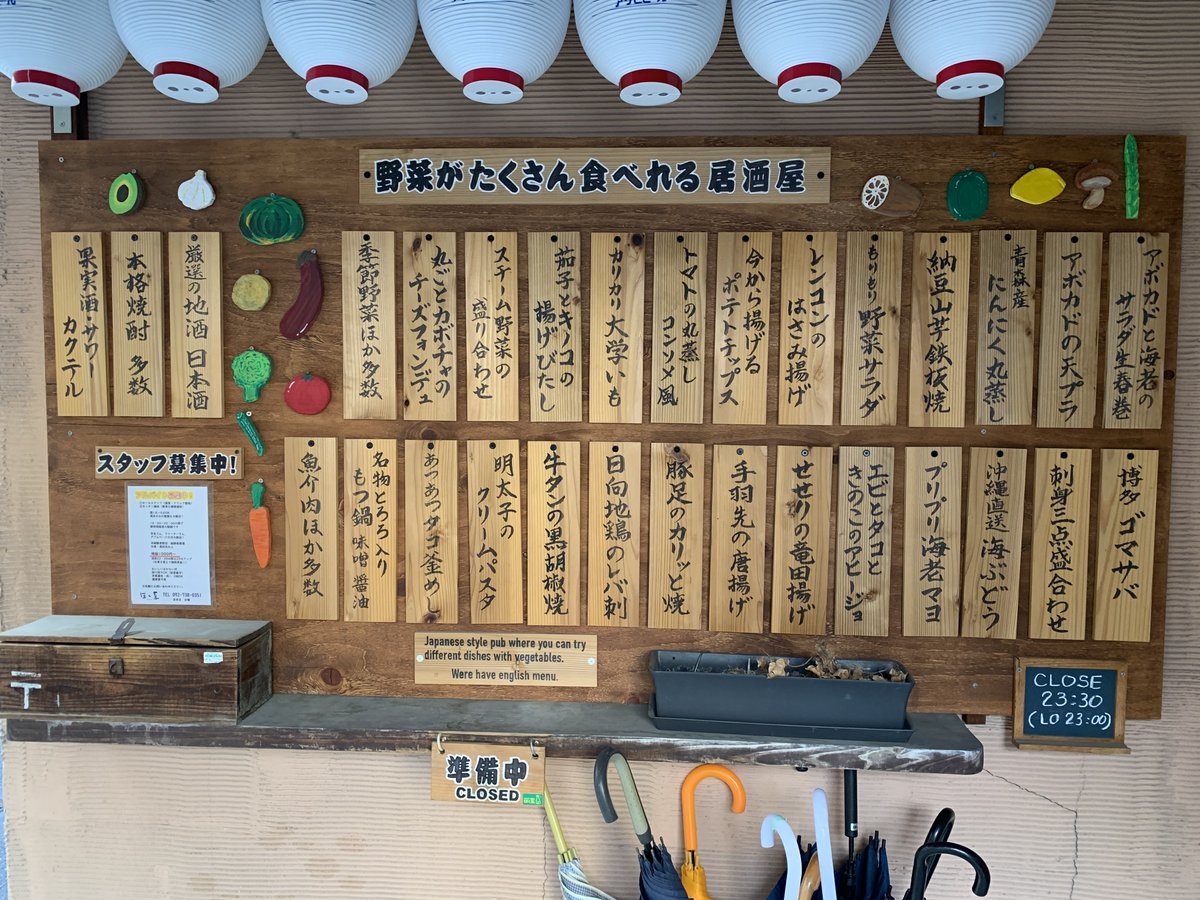 野菜がたくさん食べれる居酒屋
アボカドと海老の
サラダ生春巻
アボカドの天プラ
青森産
にんにく丸蒸し
納豆山芋鉄板焼
もりもり野菜サラダ
レンコンの
はさみ揚げ
今から揚げる
ポテトチップス
トマトの丸蒸し
コンソメ風
カリカリ大学いも
茄子とキノコの
揚げびたし
スチーム野菜の
盛り合わせ
丸ごとカボチャの
チーズフォンデュ
季節野菜ほか多数
厳選の地酒 日本酒
本格焼酎 多数
果実酒・サワー
カクテル
博多ゴマサバ
刺身三点盛合わせ
沖縄直送 海ぶどう
プリプリ海老マヨ
エビとタコと
きのこのアヒージョ
せせりの竜田揚げ
手羽先の唐揚げ
豚足のカリッと焼
日向地鶏のレバ刺
牛タンの黒胡椒焼
明太子の
クリームパスタ
あつあつタコ釜めし
名物とろろ入り
もつ鍋 味噌 醤油
魚介肉ほか多数
スタッフ募集中!
TEL 092-738-0351
Japanese style pub where you can try
different dishes with vegetables.
Were have english menu.
CLOSE
23:30
(LO 23:00)
準備中
CLOSED